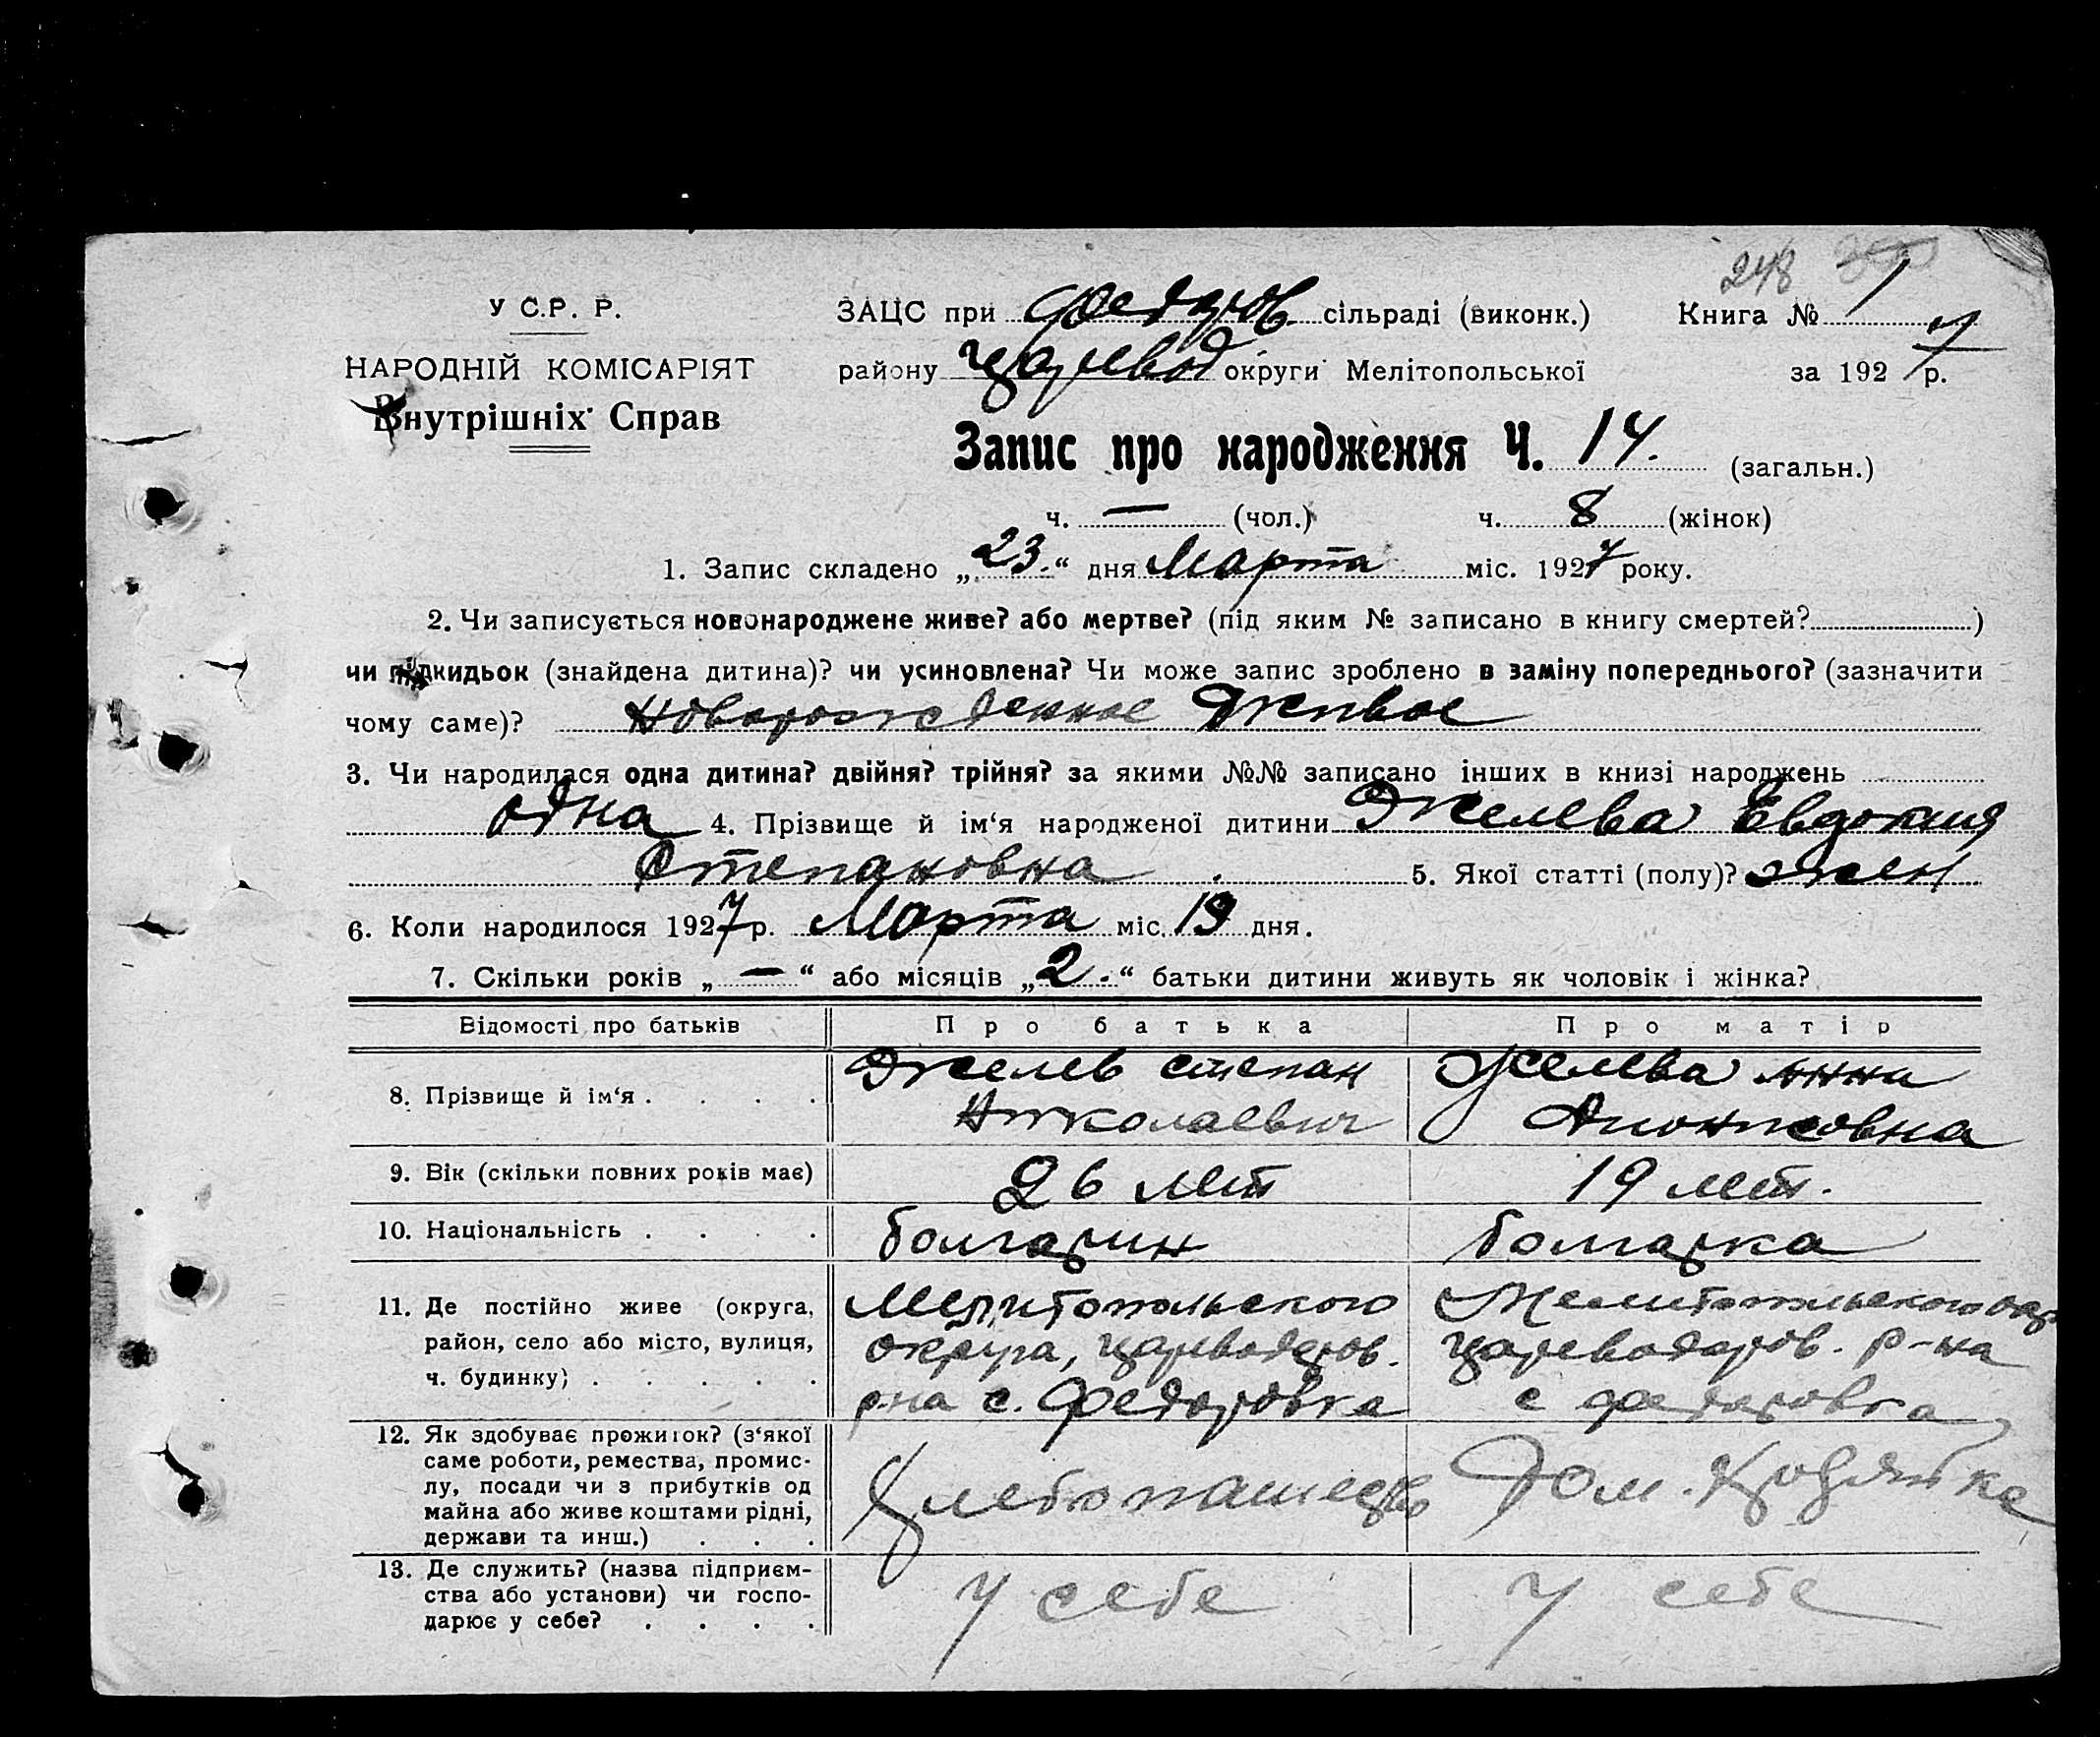 248
У С.Р. Р.
ЗАЦС при Федоров. сільраді (виконк.) Книга № 1
НАРОДНІЙ КОМІСАРІЯТ
району Царевод округи Мелітопольської за 1927 р.
Внутрішніх Справ
Запис про народження Ч. 14. (загальн.)
ч. — (чол.) ч. 8 (жінок)
1. Запис складено „23.“ дня Марта міс. 1927 року.
2. Чи записується новонароджене живе? або мертве? (під яким № записано в книгу смертей? )
чи підкидьок (знайдена дитина)? чи усиновлена? Чи може запис зроблено в заміну попереднього? (зазначити
чому саме)? Новорожденное Живое
3. Чи народилася одна дитина? двійня? трійня? за якими №№ записано інших в книзі народжень
одна 4. Прізвище й ім‘я народженої дитини Желева Евдокия
Степановна 5. Якої статті (полу)? жен
6. Коли народилося 1927 р. Марта міс. 19 дня.
7. Скільки років „—“ або місяців „2.“ батьки дитини живуть як чоловік і жінка?
Відомості про батьків Про батька Про матір
8. Прізвище й ім‘я . . . .
Желев Степан
Николаевич
Желева Анна
9. Вік (скільки повних років має) 26 лет 19 лет.
10. Національність . . . . болгарин болгарка
11. Де постійно живе (округа,
район, село або місто, вулиця,
ч. будинку) . . . . .
Мелитопольского
округа, Цареводаров.
р-на с. Федоровка
Мелитопольского окр.
Цареводаров. р-на
с Федоровка
12. Як здобуває прожиток? (з‘якої
саме роботи, ремества, промис-
лу, посади чи з прибутків од
майна або живе коштами рідні,
держави та инш.) . . .
Хлебопашество
Дом. Хозяйка
13. Де служить? (назва підприєм-
ства або установи) чи госпо-
дарює у себе? . . . .
У себе
У себе